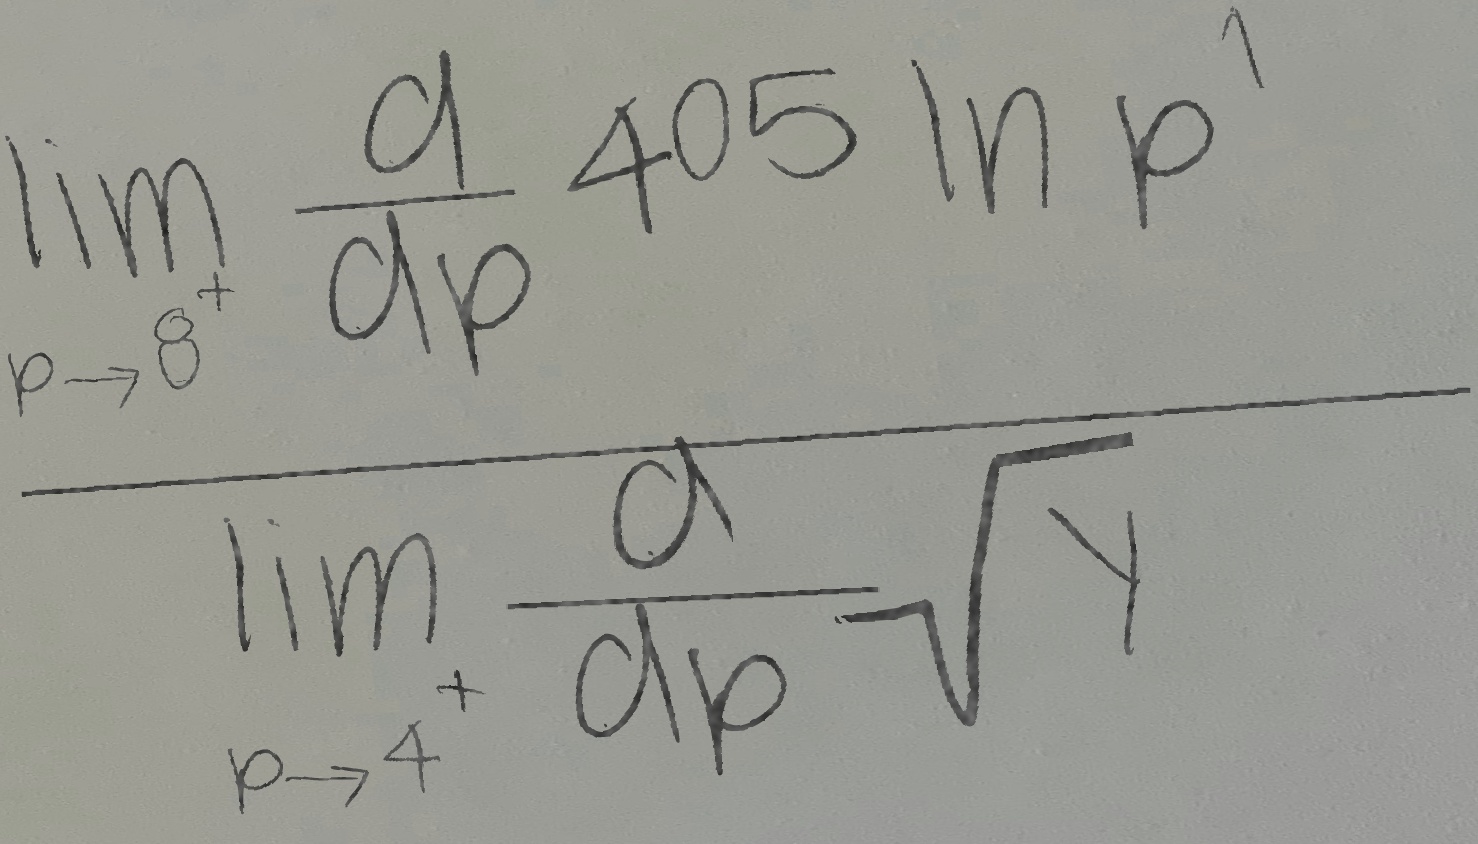 \frac{\lim_{p \to 8^+} \frac{d}{dp} 405 \ln p^1}{\lim_{p \to 4^+} \frac{d}{dp} \sqrt{y}}